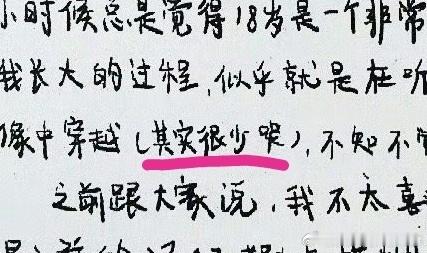 小时候总是觉得18岁是一个非常
我长大的过程,似乎就是在
像中穿越(其实很少哭),不知不
之前跟大家说,我不太喜